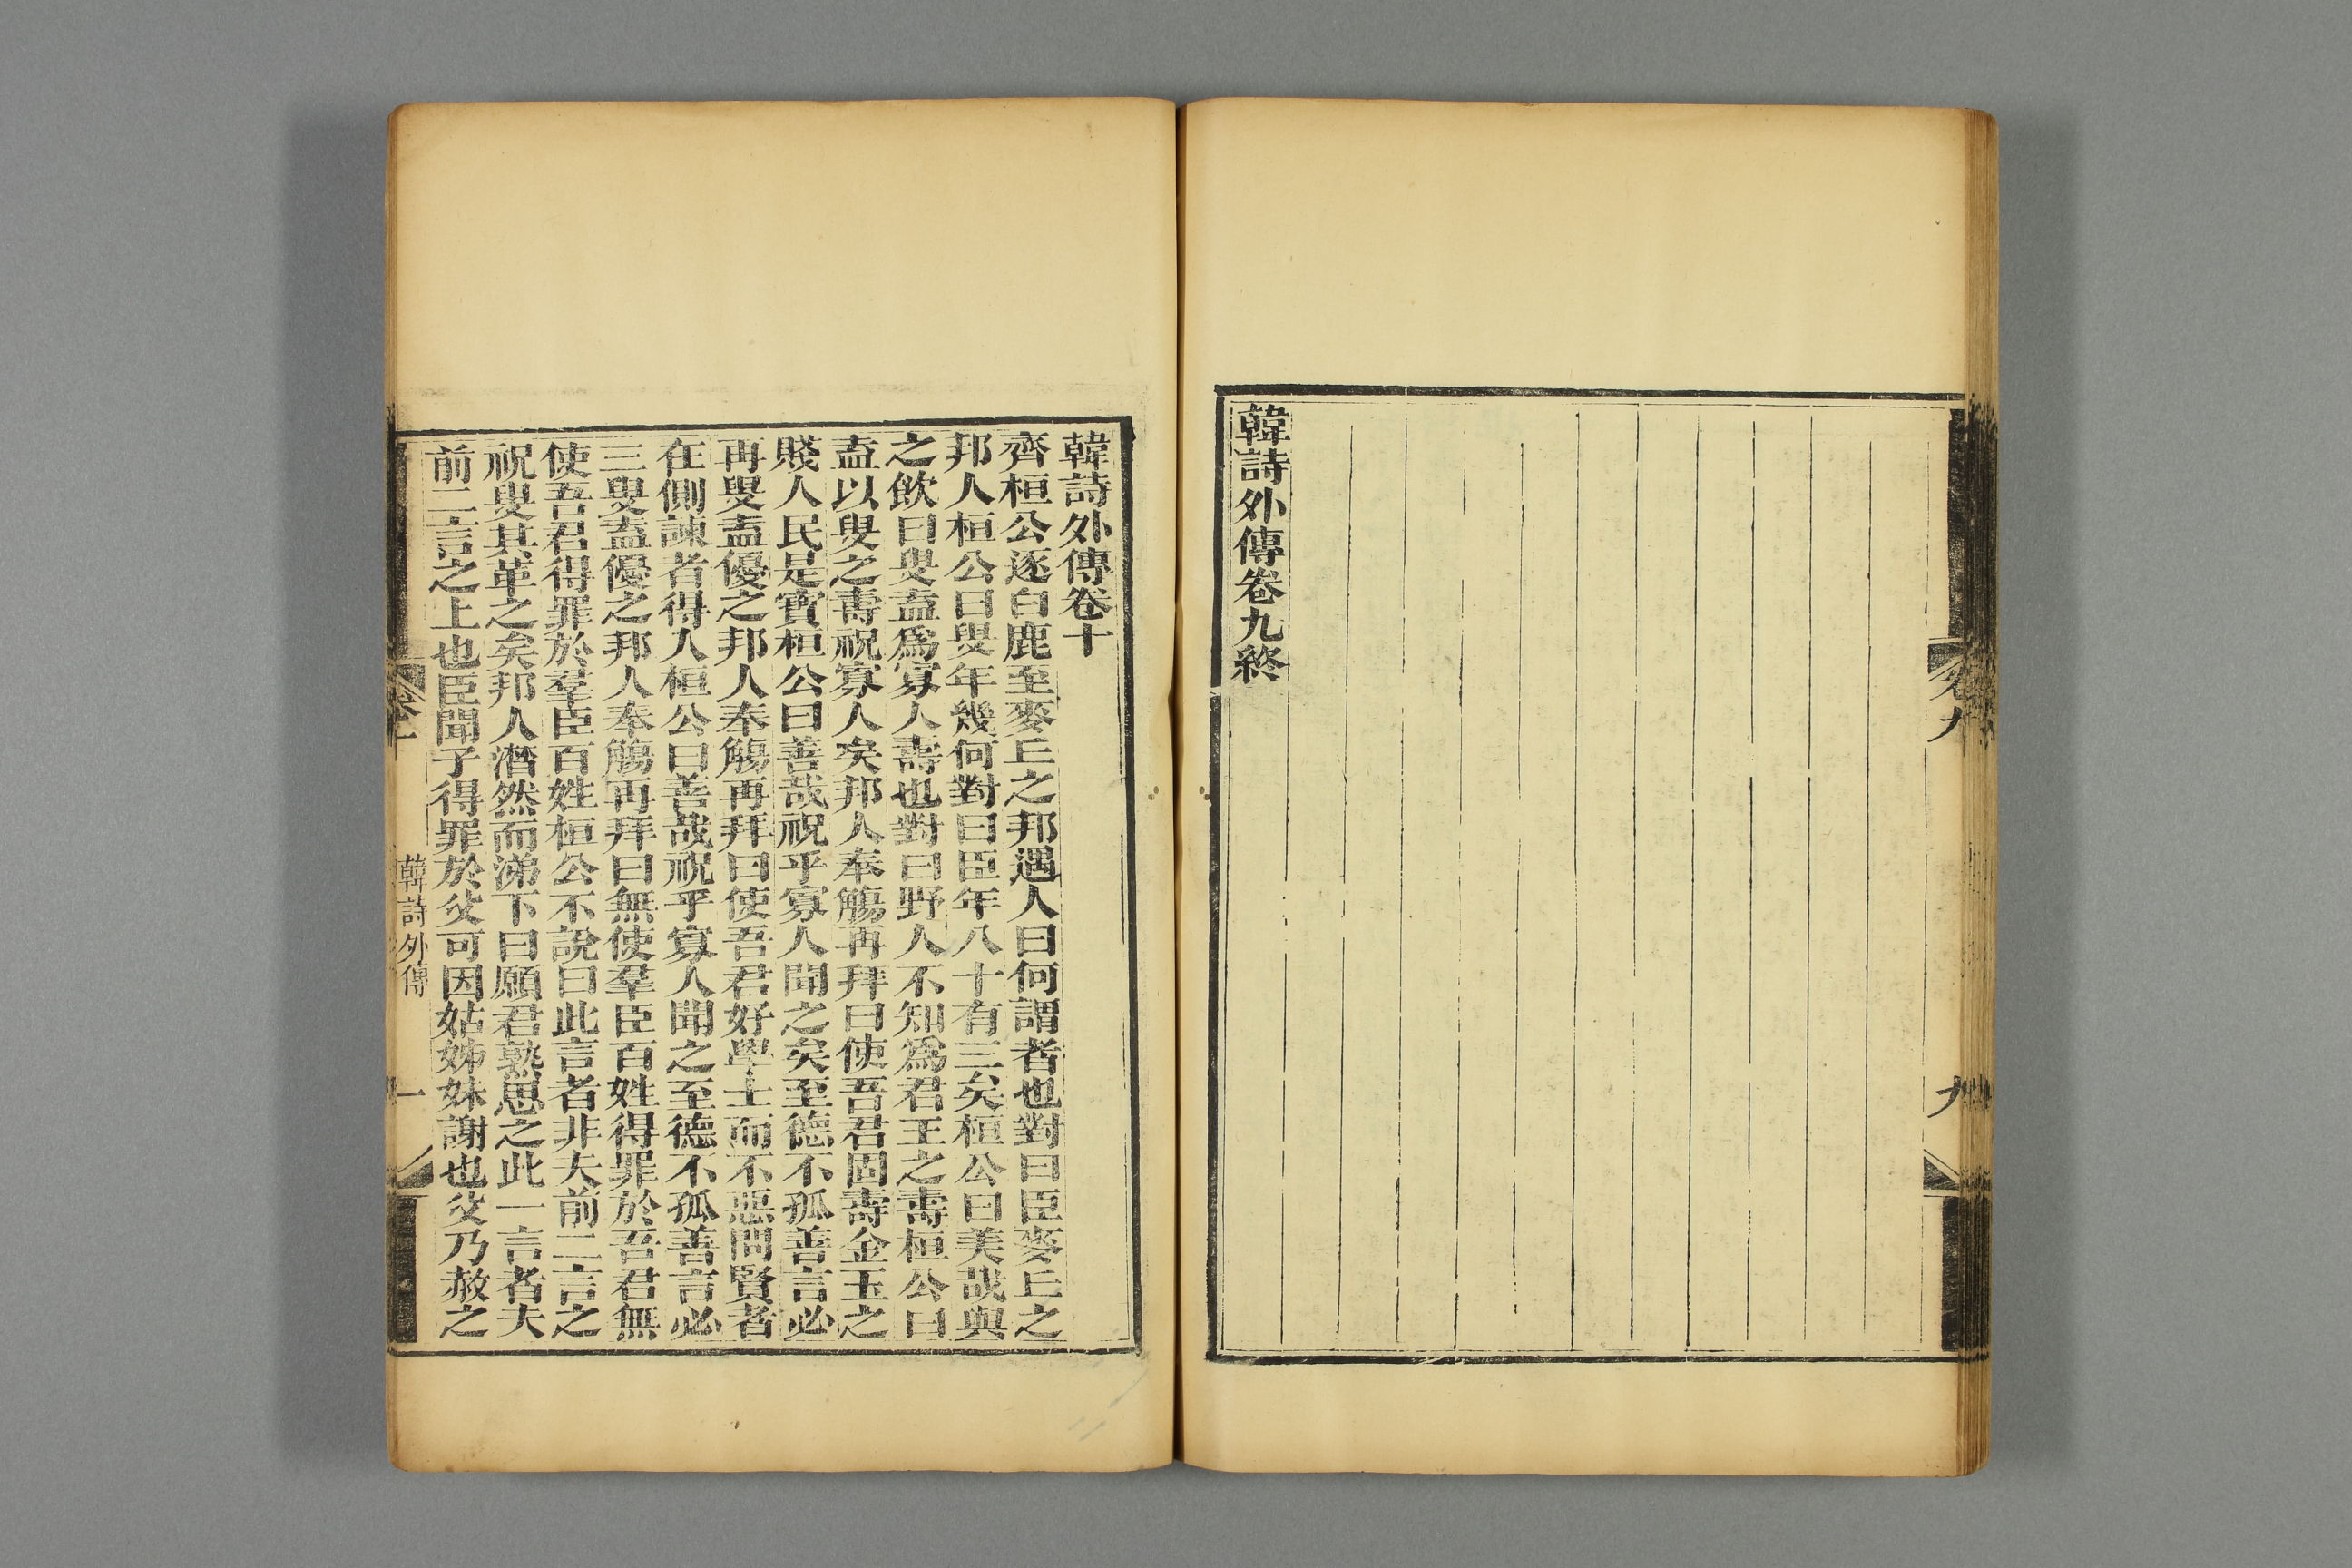 韓詩外傳卷九終
卷九
九
韓詩外傳卷十
齊桓公逐白鹿至麥丘之邦遇人曰何謂者也對曰臣麥丘之
邦人桓公曰叟年幾何對曰臣年八十有三矣桓公曰美哉與
之飲曰叟盍爲寡人壽也對曰野人不知爲君王之壽桓公曰
盍以叟之壽祝寡人矣邦人奉觴再拜曰使吾君固壽金玉之
賤人民是寶桓公曰善哉祝乎寡人聞之矣至德不孤善言必
再叟盍優之邦人奉觴再拜曰使吾君好學士而不惡問賢者
在側諫者得人桓公曰善哉祝乎寡人聞之至德不孤善言必
三叟盍優之邦人奉觴再拜曰無使羣臣百姓得罪於吾君無
使吾君得罪於羣臣百姓桓公不說曰此言者非夫前二言之
祝叟其革之矣邦人潸然而涕下曰願君熟思之此一言者夫
前二言之上也臣聞子得罪於父可因姑姊妹謝也父乃赦之
韓詩外傳
一